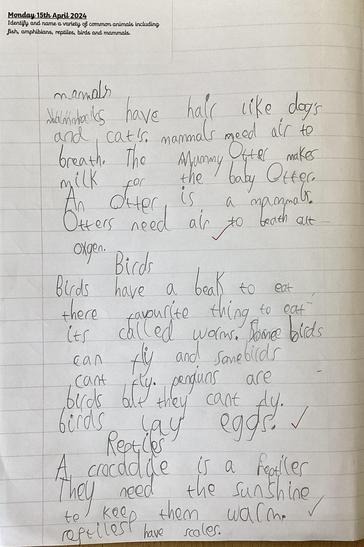 Monday 15th April 2024
Identify and name a variety of common animals including
fish, amphibians, reptiles, birds and mammals.
mamals
have hair like dogs
and cat's. mammals need air to
breath. The Mummy Otter makes
milk for the baby Otter.
An Otter is a mammals.
Otters need air to beath out
oxgen.
Birds
Birds have a beak to eat
there favourite thing to eat
its called worms. Some birds
can fly and somebirds
cant fly. penguns are
birds but they cant fly.
birds lay eggs.
Reptiles
A crocodile is a Reptiler
They need the sunshine
to keep them warm.
reptiles have scales.